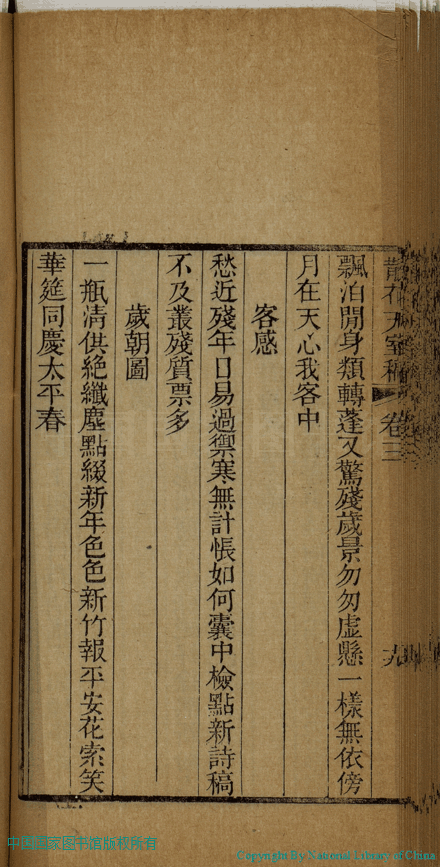 散花天室稿 卷三 十九
飄泊閒身類轉蓬又驚殘歲景匆匆虛懸一樣無依傍
月在天心我客中
客感
愁近殘年日易過禦寒無計悵如何囊中檢點新詩稿
不及叢殘質票多
歲朝圖
一瓶清供絕纖塵點綴新年色色新竹報平安花索笑
華筵同慶太平春
中国国家图书馆版权所有
Copyright By National Library of China